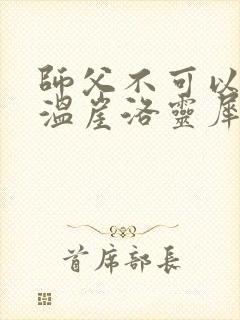 師父不可以
溫崖洛靈犀
首席部長